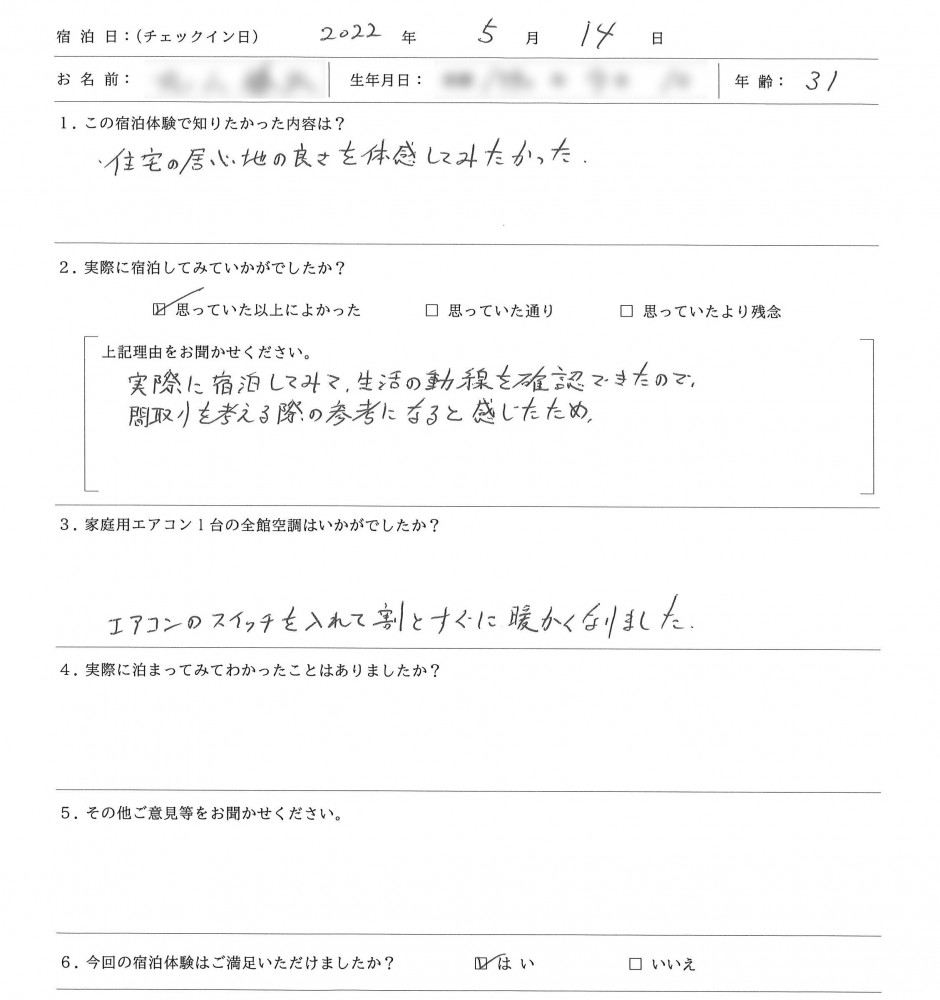 宿泊日：(チェックイン日) 2022 年 5 月 14 日
お名前： 生年月日： 年齢： 31
1. この宿泊体験で知りたかった内容は？
・住宅の居心地の良さを体感してみたかった.
2. 実際に宿泊してみていかがでしたか？
☑ 思っていた以上によかった □ 思っていた通り □ 思っていたより残念
上記理由をお聞かせください。
実際に宿泊してみて、生活の動線を確認できたので、
間取りを考える際の参考になると感じたため、
3. 家庭用エアコン1台の全館空調はいかがでしたか？
エアコンのスイッチを入れて割とすぐに暖かくなりました.
4. 実際に泊まってみてわかったことはありましたか？
5. その他ご意見等をお聞かせください。
6. 今回の宿泊体験はご満足いただけましたか？ ☑ はい □ いいえ